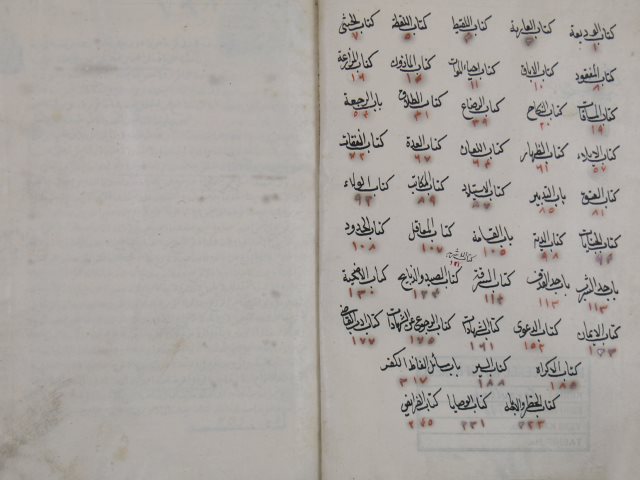 كتاب الوديعة كتاب العارية كتاب اللقيط كتاب اللقطة كتاب الخنثى
٥ ٧
كتاب المفقود كتاب الاباق كتاب احياء الموات كتاب المأذون كتاب المزارعة
٨ ١٠ ١١ ١٤ ١٦
كتاب المساقات كتاب النكاح كتاب الرضاع كتاب الطلاق باب الرجعة
١٩ ٢٠ ٣٩ ٤١ ٥٤
كتاب الايلاء كتاب الظهار كتاب اللعان كتاب العدة كتاب النفقات
٥٧ ٦١ ٦٤ ٦٧ ٧٢
كتاب العتق باب التدبير كتاب الاستيلاد كتاب المكاتب كتاب الولاء
٨١ ٨٥ ٨٧ ٨٩ ٩٣
كتاب الجنايات كتاب الدية باب القسامة كتاب المعاقل كتاب الحدود
٩٤ ٩٨ ١٠٥ ١٠٧ ١٠٨
كتاب الاشربة
١٢١
باب حد الشرب باب حد القذف كتاب السرقة كتاب الصيد والذبايح كتاب الاضحية
١١٣ ١١٣ ١١٤ ١٢٤ ١٣٠
كتاب الايمان كتاب الدعوى كتاب الشهادات كتاب الرجوع عن الشهادات كتاب ادب القاضي
١٥٢ ١٦١ ١٧٥ ١٧٧
كتاب الاكراه كتاب السير باب مسائل الفاظ الكفر
١٨٥ ١٨٨ ٣١٧
كتاب الحظر والاباحة كتاب الوصايا كتاب الفرائض
٢٢٣ ٢٣١ ٢٤٥